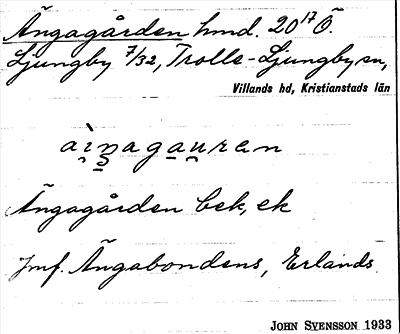 Ängagården hmd. 20¹⁷ Ö.
Ljungby 7/32, Trolle-Ljungby sn,
Villands hd, Kristianstads län
Ängagården bek, ek
Jmf. Ängabondens, Erlands
JOHN SVENSSON 1933